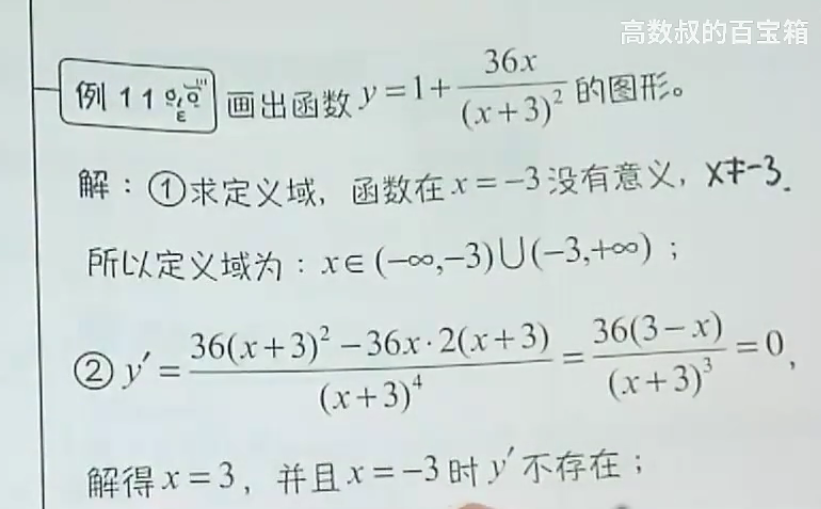 高数叔的百宝箱
例11 画出函数 y=1+36x/(x+3)²的图形。
解：①求定义域，函数在x=-3没有意义，x≠-3.
所以定义域为：x∈(-∞,-3)∪(-3,+∞)；
②y′=36(x+3)²-36x·2(x+3)/(x+3)⁴=36(3-x)/(x+3)³=0，
解得x=3，并且x=-3时y′不存在；